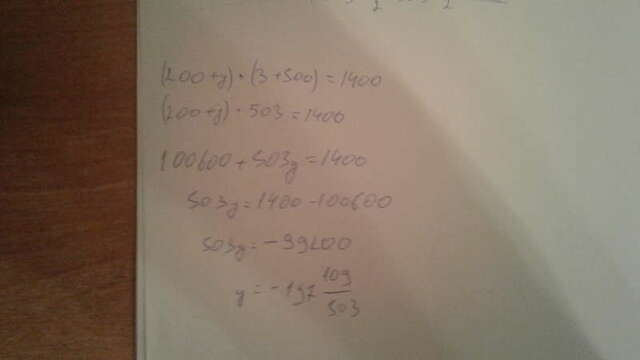 (200+y)·(3+500)=1400
(200+y)·503=1400
100600+503y=1400
503y=1400-100600
503y=-99200
y=-197 109/503